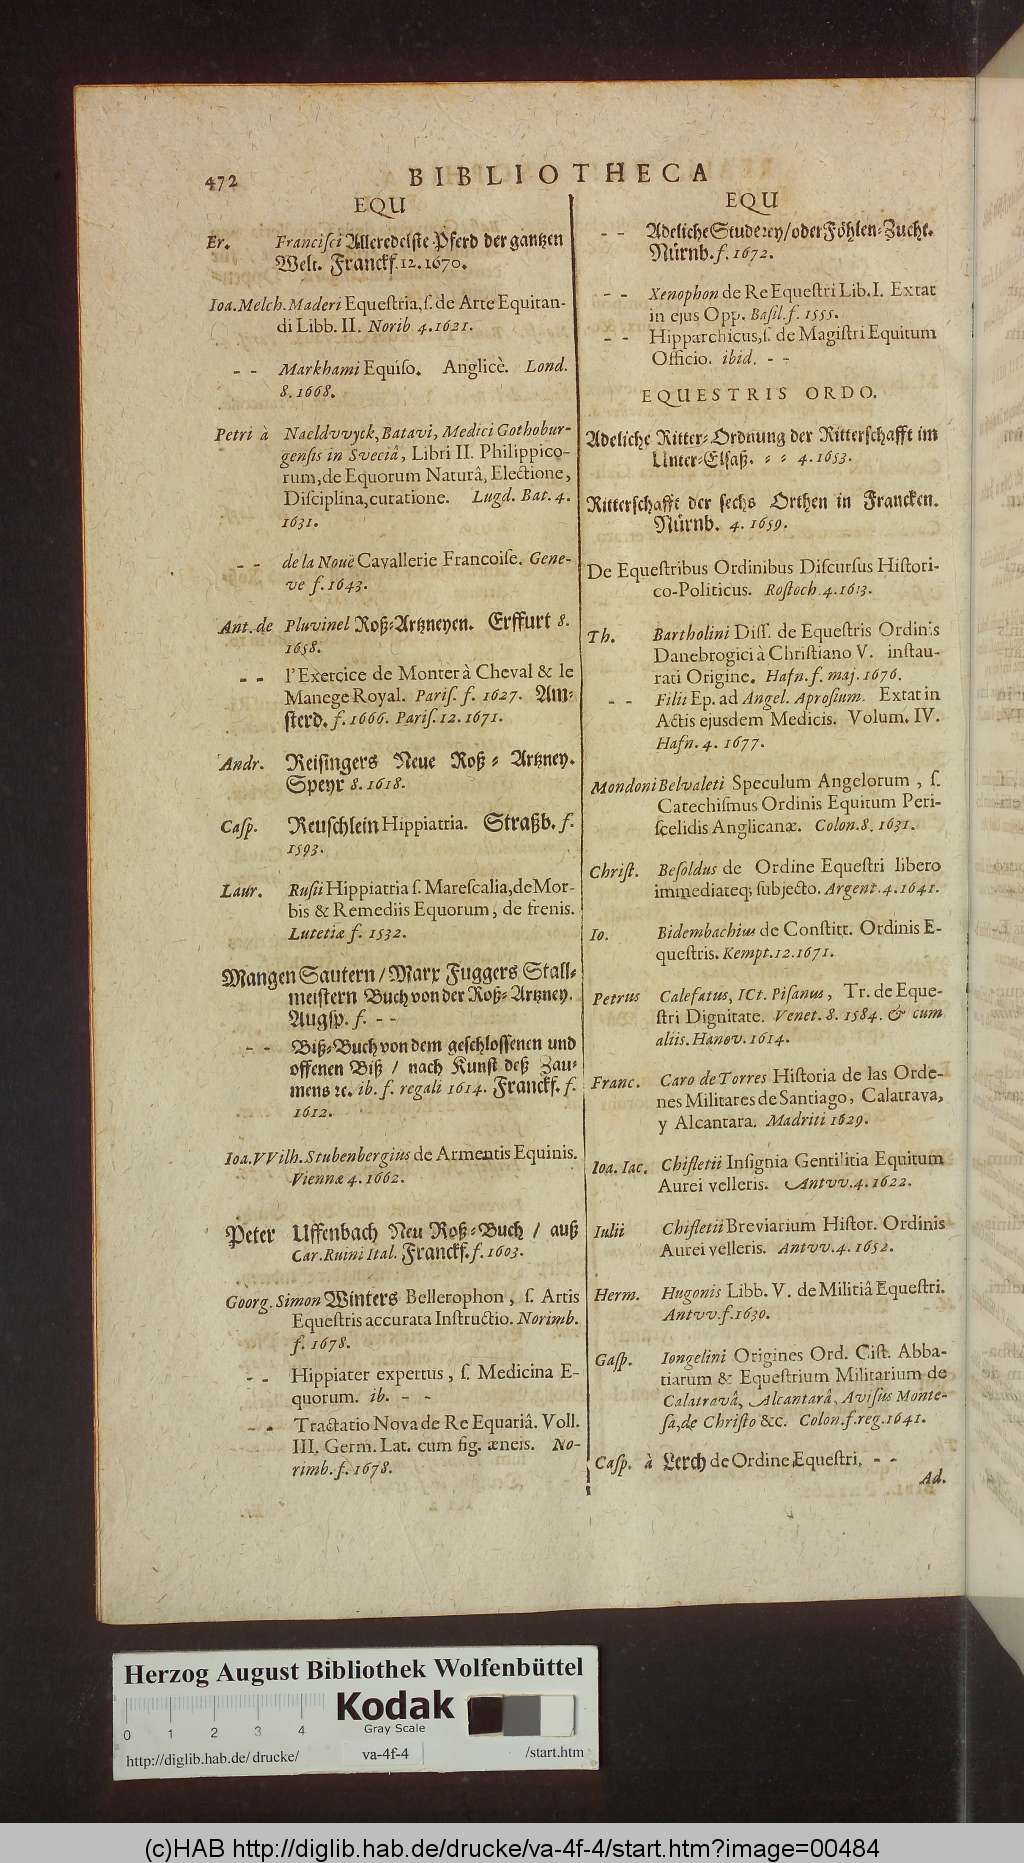 472 BIBLIOTHECA
EQU
Er. Franciſci Alleredelſte Pferd der gantzen
Welt. Franckf. 12. 1670.
Ioa. Melch. Maderi Equeſtria, ſ. de Arte Equitan-
di Libb. II. Norib 4. 1621.
- - Markhami Equiſo. Anglicè. Lond.
8. 1668.
Petri à Naeldvvyck, Batavi, Medici Gothobur-
genſis in Sveciâ, Libri II. Philippico-
rum, de Equorum Naturâ, Electione,
Diſciplina, curatione. Lugd. Bat. 4.
1631.
- - de la Nouë Cavallerie Francoiſe. Gene-
ve f. 1643.
Ant. de Pluvinel Roß-Artzneyen. Erffurt 8.
1658.
- - l'Exercice de Monter à Cheval & le
Manege Royal. Pariſ. f. 1627. Am-
ſterd. f. 1666. Pariſ. 12. 1671.
Andr. Reiſingers Neue Roß-Artzney.
Speyr 8. 1618.
Caſp. Reuſchlein Hippiatria. Straßb. f.
1593.
Laur. Ruſii Hippiatria ſ. Mareſcalia, de Mor-
bis & Remediis Equorum, de frenis.
Lutetiæ f. 1532.
Mangen Sautern / Marx Fuggers Stall-
meiſtern Buch von der Roß-Artzney.
Augſp. f. - -
- - Biß-Buch von dem geſchloſſenen und
offenen Biß / nach Kunſt deß Zau-
mens ꝛc. ib. f. regali 1614. Franckf. f.
1612.
Ioa. VVilh. Stubenbergius de Armentis Equinis.
Viennæ 4. 1662.
Peter Uffenbach Neu Roß-Buch / auß
Car. Ruini Ital. Franckf. f. 1603.
Georg. Simon Winters Bellerophon, ſ. Artis
Equeſtris accurata Inſtructio. Norimb.
f. 1678.
- - Hippiater expertus, ſ. Medicina E-
quorum. ib. - -
- - Tractatio Nova de Re Equariâ. Voll.
III. Germ. Lat. cum fig. æneis. No-
rimb. f. 1678.
EQU
- - Adeliche Stuterey / oder Föhlen-Zucht.
Nürnb. f. 1672.
- - Xenophon de Re Equeſtri Lib. I. Extat
in ejus Opp. Baſil. f. 1555.
- - Hipparchicus, ſ. de Magiſtri Equitum
Officio. ibid. - -
EQUESTRIS ORDO.
Adeliche Ritter-Ordnung der Ritterſchafft im
Unter-Elſaß. - - 4. 1653.
Ritterſchafft der ſechs Orthen in Francken.
Nürnb. 4. 1659.
De Equeſtribus Ordinibus Diſcurſus Hiſtori-
co-Politicus. Roſtoch. 4. 1613.
Th. Bartholini Diſſ. de Equeſtris Ordinis
Danebrogici à Chriſtiano V. inſtau-
rati Origine. Hafn. f. maj. 1676.
- - Filii Ep. ad Angel. Aproſium. Extat in
Actis ejusdem Medicis. Volum. IV.
Hafn. 4. 1677.
Mondoni Belvaleti Speculum Angelorum, ſ.
Catechiſmus Ordinis Equitum Peri-
ſcelidis Anglicanæ. Colon. 8. 1631.
Chriſt. Beſoldus de Ordine Equeſtri libero
immediateq; ſubjecto. Argent. 4. 1641.
Io. Bidembachius de Conſtitt. Ordinis E-
queſtris. Kempt. 12. 1671.
Petrus Calefatus, ICt. Piſanus, Tr. de Eque-
ſtri Dignitate. Venet. 8. 1584. & cum
aliis. Hanov. 1614.
Franc. Caro de Torres Hiſtoria de las Orde-
nes Militares de Santiago, Calatrava,
y Alcantara. Madriti 1629.
Ioa. Iac. Chifletii Inſignia Gentilitia Equitum
Aurei velleris. Antvv. 4. 1622.
Iulii Chifletii Breviarium Hiſtor. Ordinis
Aurei velleris. Antvv. 4. 1652.
Herm. Hugonis Libb. V. de Militiâ Equeſtri.
Antvv. f. 1630.
Gaſp. Iongelini Origines Ord. Ciſt. Abba-
tiarum & Equeſtrium Militarium de
Calatravâ, Alcantarâ, Aviſus Monte-
ſa, de Chriſto &c. Colon. f. reg. 1641.
Caſp. à Lerch de Ordine Equeſtri. - -
Ad.
Herzog August Bibliothek Wolfenbüttel
Kodak
Gray Scale
0 1 2 3 4
http://diglib.hab.de/drucke/ va-4f-4 /start.htm
(c)HAB http://diglib.hab.de/drucke/va-4f-4/start.htm?image=00484